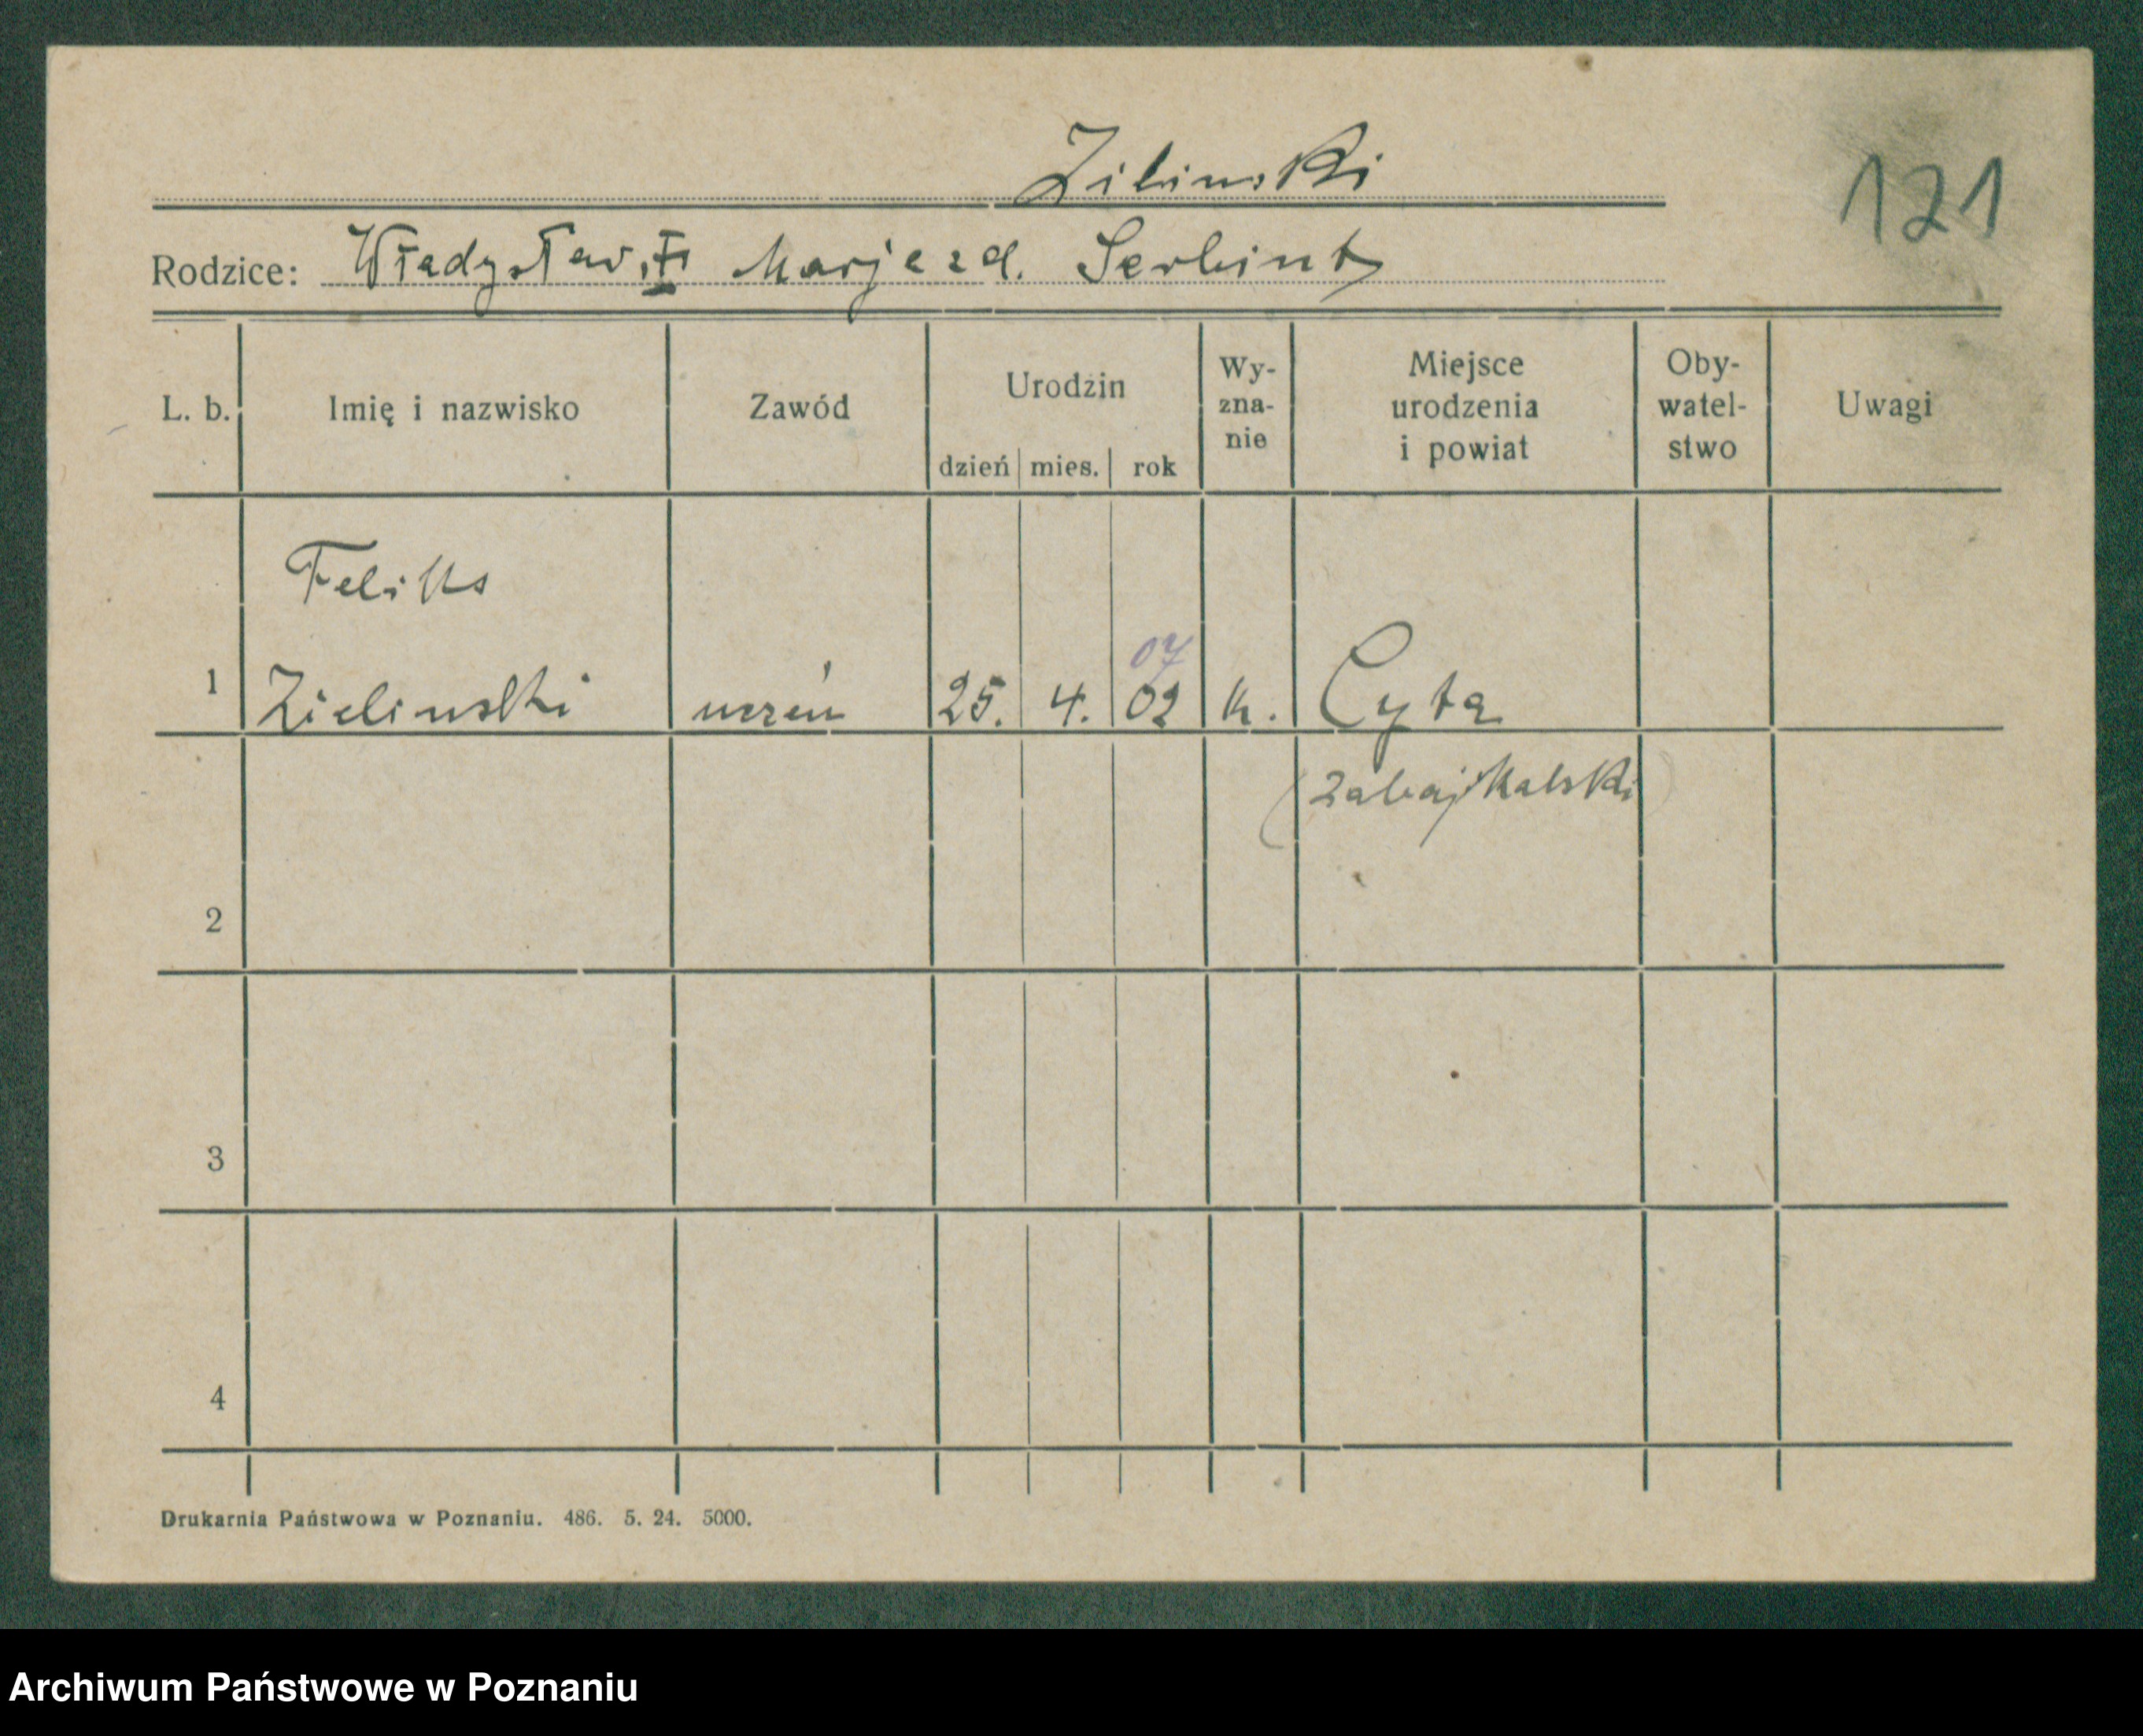 Zieliński
121
Rodzice: Władysław, i Marja z d. Serbint
L. b. Imię i nazwisko Zawód Urodzin dzień mies. rok Wy-zna-nie Miejsce urodzenia i powiat Oby-watel-stwo Uwagi
Feliks
07
1 Zielinski uczeń 25. 4. 02 k. Cyta
(Zabajkalski)
2
3
4
Drukarnia Państwowa w Poznaniu. 486. 5. 24. 5000.
Archiwum Państwowe w Poznaniu